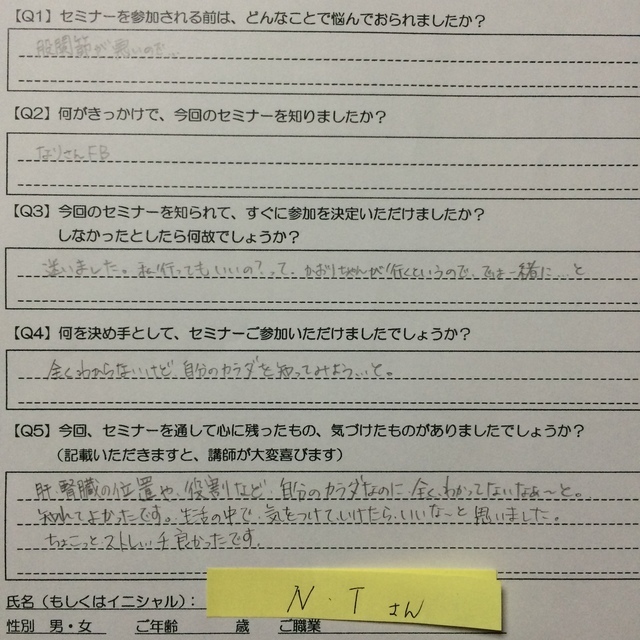 【Q1】セミナーを参加される前は、どんなことで悩んでおられましたか？
股関節が悪いので…
【Q2】何がきっかけで、今回のセミナーを知りましたか？
なりさんFB
【Q3】今回のセミナーを知られて、すぐに参加を決定いただけましたか？
しなかったとしたら何故でしょうか？
迷いました。私行ってもいいの？って。かおりちゃんが行くというので、では一緒に…と
【Q4】何を決め手として、セミナーご参加いただけましたでしょうか？
全くわからないけど、自分のカラダを知ってみよう…と。
【Q5】今回、セミナーを通して心に残ったもの、気づけたものがありましたでしょうか？
（記載いただきますと、講師が大変喜びます）
肝、腎臓の位置や、役割など、自分のカラダなのに、全くわかってないなぁ〜と。
知れてよかったです。生活の中で、気をつけていけたらいいな〜と思いました。
ちょこっとストレッチ良かったです。
氏名（もしくはイニシャル）：
N・Tさん
性別 男・女 ご年齢 歳 ご職業